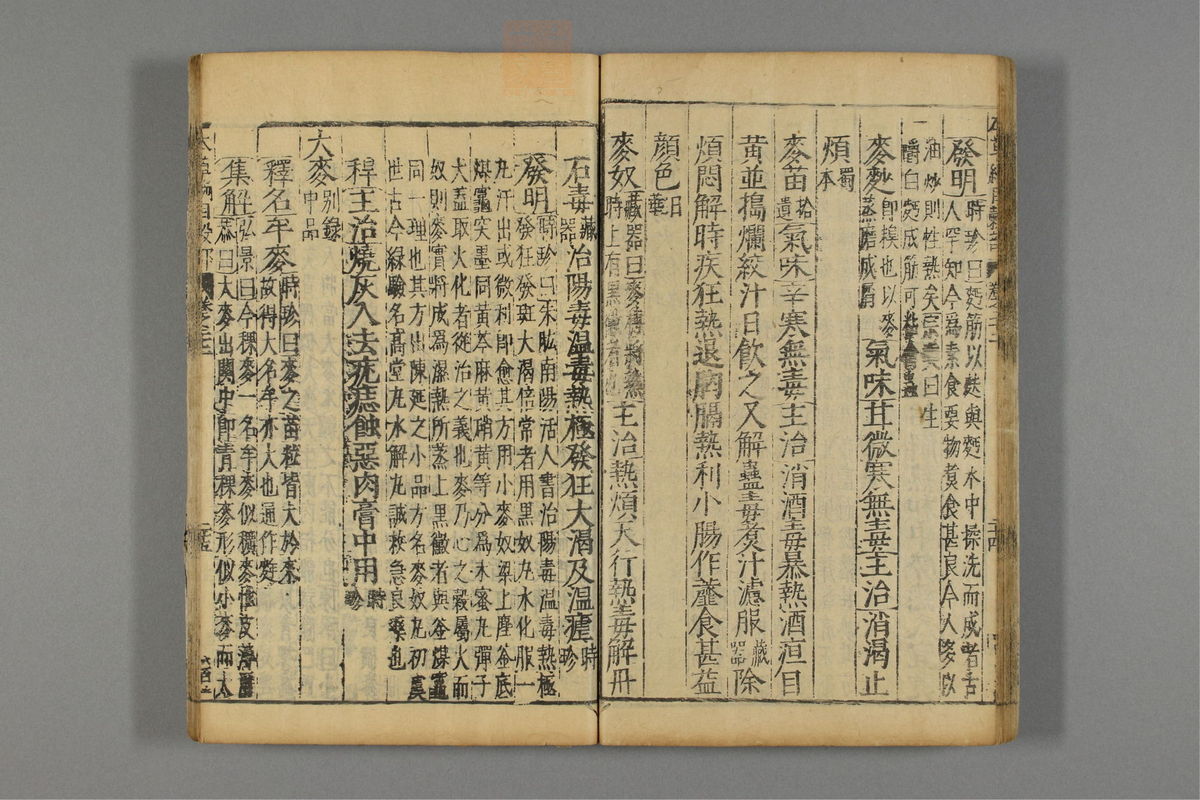 發明時珍曰麪筋以麩與麪水中揉洗而成者古
人罕知今爲素食要物煮食甚良今人多以
油炒則性熱矣宗奭曰生
嚼白麪成筋可粘禽蟲
麥麨即糗也以麥蒸磨成屑氣味甘微寒無毒主治消渴止
煩蜀本
麥苗拾遺氣味辛寒無毒主治消酒毒暴熱酒疸目
黃並搗爛絞汁日飲之又解蠱毒煮汁濾服藏器除
煩悶解時疾狂熱退胸膈熱利小腸作虀食甚益
顏色日華
麥奴藏器曰麥穗將熟時上有黑黴者也主治熱煩天行熱毒解丹
石毒藏器治陽毒温毒熱極發狂大渴及温瘧時珍
發明時珍曰朱肱南陽活人書治陽毒温毒熱極
發狂發斑大渴倍常者用黑奴丸水化服一
丸汗出或微利即愈其方用小麥奴梁上塵釜底
煤竈突墨同黃芩麻黃硝黃等分爲末蜜丸彈子
大蓋取火化者從治之義也麥乃心之穀屬火而
奴則麥實將成爲濕熱所蒸上黑黴者與釜煤竈
同一理也其方出陳延之小品方名麥奴丸初虞
世古今錄驗名高堂丸水解丸誠救急良藥也
稈主治燒灰入去疣痣蝕惡肉膏中用時珍
大麥別錄中品
釋名牟麥時珍曰麥之苗粒皆大於來
故得大名牟亦大也通作麰
集解弘景曰今稞麥一名牟麥似穬麥惟皮薄爾
恭曰大麥出關中即青稞麥形似小麥而大